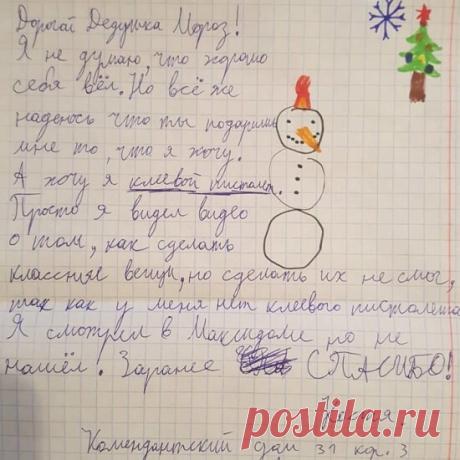 Дорогой Дедушка Мороз!
Я не думаю, что хорошо
себя вёл. Но всё же
надеюсь что ты подаришь
мне то, что я хочу.
А хочу я клеевой пистолет.
Просто я видел видео
о том, как сделать
классные вещи, но сделать их не смог,
так как у меня нет клеевого пистолета
Я смотрел в Максидоме но не
нашёл. Заранее СПАСИБО!
Комендантский дом 31 кор. 3
postila.ru